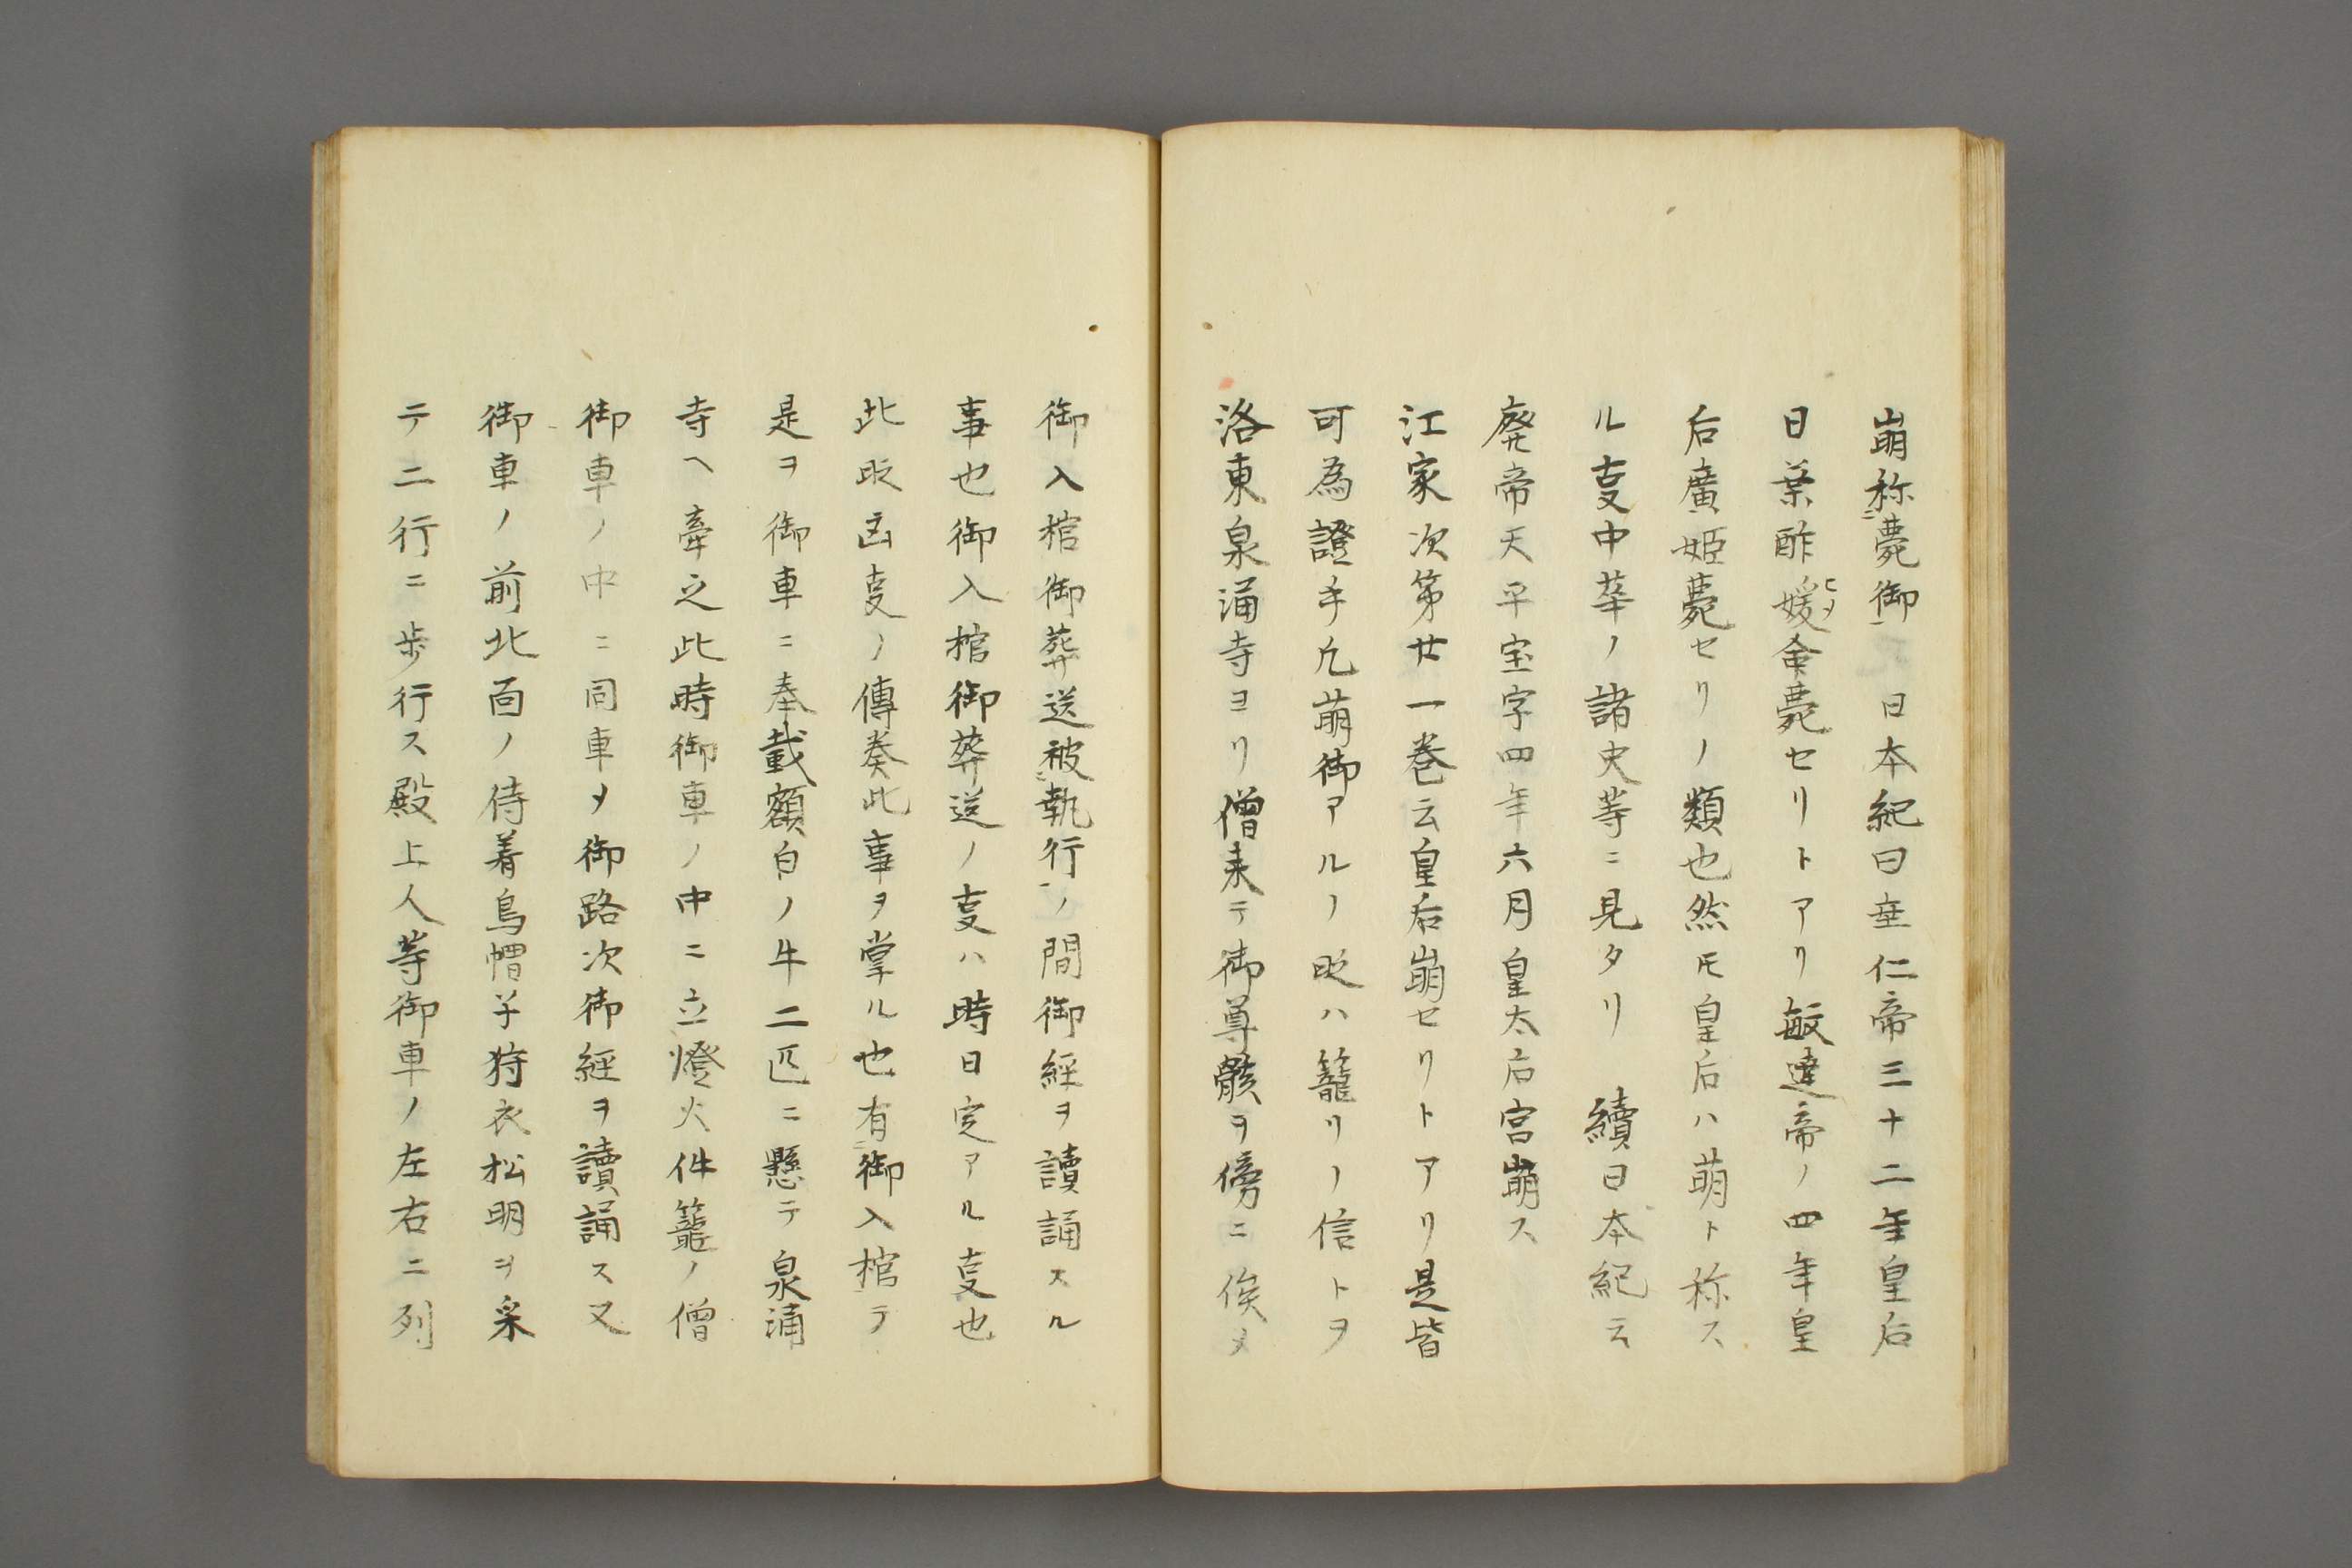 崩称薨御　日本紀曰垂仁帝三十二年皇后
日葉酢媛ヒメ命薨セリトアリ敏達帝ノ四年皇
后廣姫薨セリノ類也然𪜈皇后ハ崩ト称ス
ル叓中華ノ諸史等ニ見タリ　續日本紀云
廃帝天平宝字四年六月皇太后宮崩ス
江家次第廿一巻云皇后崩セリトアリ是皆
可為證乎凢崩御アルノ砌ハ籠リノ信トヲ
洛東泉涌寺ヨリ僧来テ御尊骸ヲ傍ニ俟メ
御入棺御葬送被執行ノ間御経ヲ讀誦スル
事也御入棺御葬送ノ叓ハ時日定アル叓也
此凶叓ノ傳奏此事ヲ掌ル也有御入棺テ
是ヲ御車ニ奉載額白ノ牛二匹ニ懸テ泉涌
寺ヘ牽之此時御車ノ中ニ立燈火件籠ノ僧
御車ノ中ニ同車メ御路次御経ヲ讀誦ス又
御車ノ前北面ノ侍着烏帽子狩衣松明ヲ采
テ二行ニ歩行ス殿上人等御車ノ左右ニ列